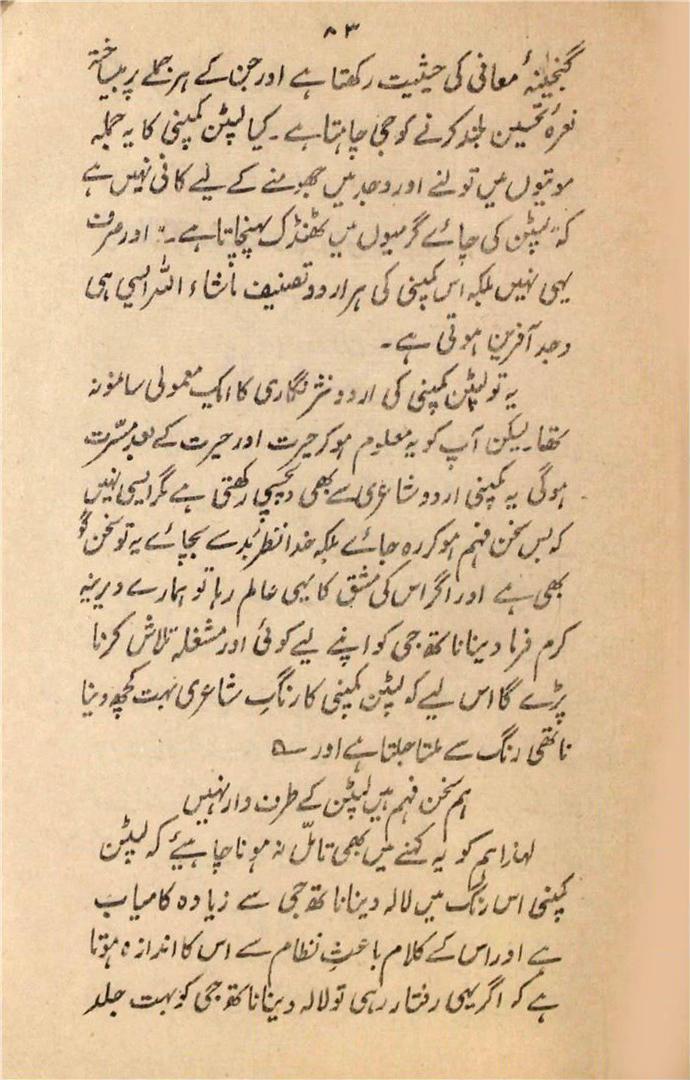 ۸۳
گنجینۂ معانی کی حیثیت رکھتا ہے اور جن کے ہر جملے پر بیساختہ
نعرۂ تحسین بلند کرنے کو جی چاہتا ہے۔ کیا لپٹن کمپنی کا یہ جملہ
موتیوں میں تولنے اور وجد میں جھومنے کے لیے کافی نہیں ہے
کہ "لپٹن کی چائے گرمیوں میں ٹھنڈک پہنچاتا ہے۔" اور صرف
یہی نہیں بلکہ اس کمپنی کی ہر اردو تصنیف ماشاء اللہ ایسی ہی
وجد آفریں ہوتی ہے۔
یہ تو لپٹن کمپنی کی اردو نثر نگاری کا ایک معمولی سا نمونہ
تھا۔ لیکن آپ کو یہ معلوم ہو کر حیرت اور حیرت کے بعد مسّرت
ہوگی یہ کمپنی اردو شاعری سے بھی دلچسپی رکھتی ہے مگر ایسی نہیں
کہ بس سخن فہم ہو کر رہ جائے بلکہ خدا نظرِ بد سے بچائے یہ تو سخن گو
بھی ہے اور اگر اس کی مشق کا یہی عالم رہا تو ہمارے دیرینہ
کرم فرما دینا ناتھ جی کو اپنے لیے کوئی اور مشغلہ تلاش کرنا
پڑے گا اس لیے کہ لپٹن کمپنی کا رنگِ شاعری بہت کچھ دینا
ناتھی رنگ سے ملتا جلتا ہے اور ؎
ہم سخن فہم ہیں لپٹن کے طرف دار نہیں
لہٰذا ہم کو یہ کہنے میں بھی تامّل نہ ہونا چاہیئے کہ لپٹن
کمپنی اس رنگ میں لالہ دینا ناتھ جی سے زیادہ کامیاب
ہے اور اس کے کلام باعثِ نظام سے اس کا اندازہ ہوتا
ہے کہ اگر یہی رفتار رہی تو لالہ دینا ناتھ جی کو بہت جلد